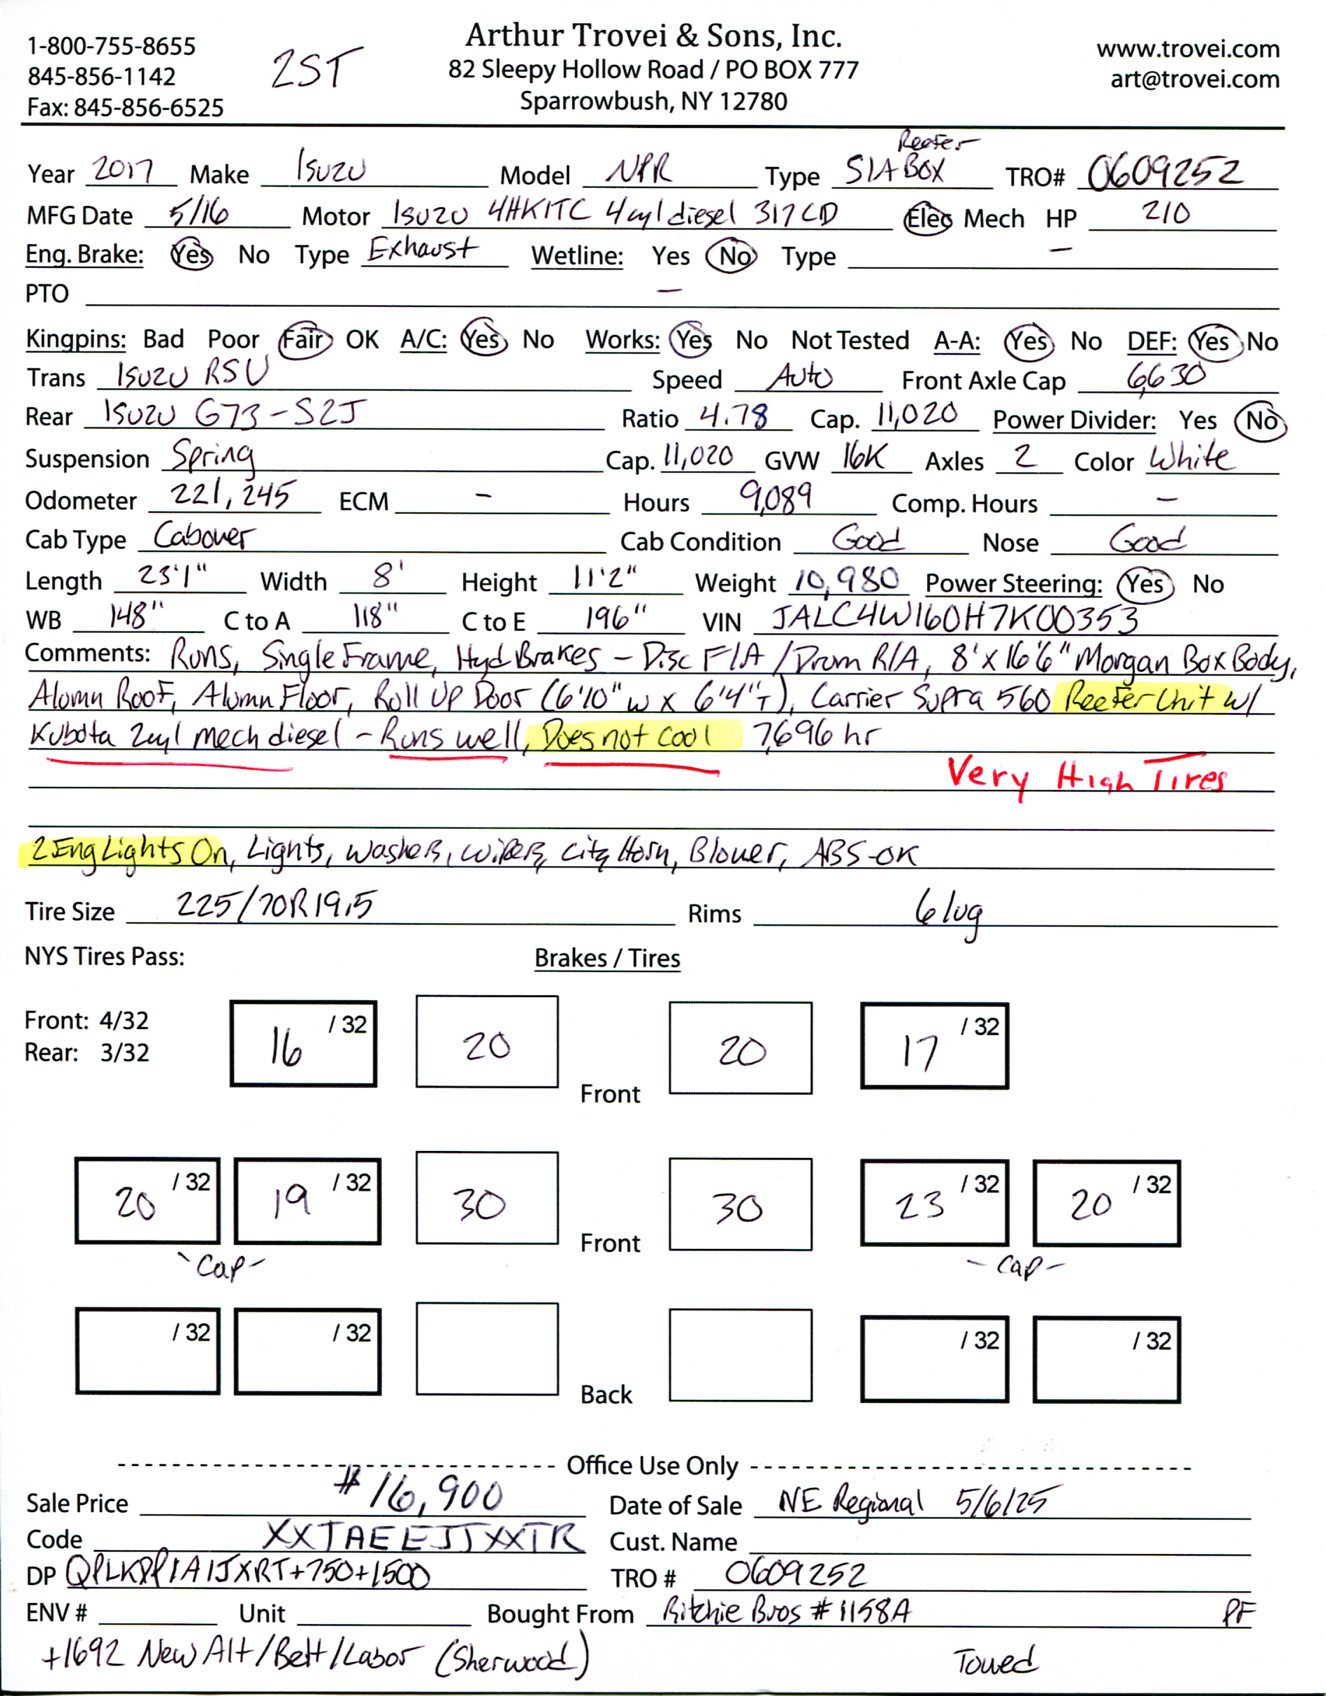 1-800-755-8655
845-856-1142
Fax: 845-856-6525
2ST
Arthur Trovei & Sons, Inc.
82 Sleepy Hollow Road / PO BOX 777
Sparrowbush, NY 12780
www.trovei.com
art@trovei.com
Reefer
Year 2017 Make Isuzu Model NPR Type S/A Box TRO# 0609252
MFG Date 5/16 Motor Isuzu 4HK1TC 4cyl diesel 317CD Elec Mech HP 210
Eng. Brake: Yes No Type Exhaust Wetline: Yes No Type –
PTO –
Kingpins: Bad Poor Fair OK A/C: Yes No Works: Yes No Not Tested A-A: Yes No DEF: Yes No
Trans Isuzu RSU Speed Auto Front Axle Cap 6,630
Rear Isuzu G73-S2J Ratio 4.78 Cap. 11,020 Power Divider: Yes No
Suspension Spring Cap. 11,020 GVW 16K Axles 2 Color White
Odometer 221,245 ECM – Hours 9,089 Comp. Hours –
Cab Type Cabover Cab Condition Good Nose Good
Length 23'1" Width 8' Height 11'2" Weight 10,980 Power Steering: Yes No
WB 148" C to A 118" C to E 196" VIN JALC4W160H7K00353
Comments: Runs, Single Frame, Hyd Brakes - Disc F/A / Drum R/A, 8' x 16'6" Morgan Box Body,
Alumn Roof, Alumn Floor, Roll Up Door (6'10"w x 6'4"T), Carrier Supra 560 Reefer Unit w/
Kubota 2cyl mech diesel - Runs well, Does not cool 7,696 hr
Very High Tires
2 Eng Lights On, Lights, Washer, Wiper, City Horn, Blower, ABS-OK
Tire Size 225/70R19.5 Rims 6 lug
NYS Tires Pass: Brakes / Tires
Front: 4/32
Rear: 3/32
16 /32 20 Front 20 17 /32
20 /32 19 /32 30 Front 30 23 /32 20 /32
-Cap- -Cap-
/32 /32 Back /32 /32
Office Use Only
Sale Price $16,900 Date of Sale NE Regional 5/6/25
Code XXTAEEJJXXTR Cust. Name
DP QPLKPP1A1JXRT+750+1500 TRO # 0609252
ENV # Unit Bought From Ritchie Bros #1158A PF
+1692 New Alt/Belt/Labor (Sherwood) Towed